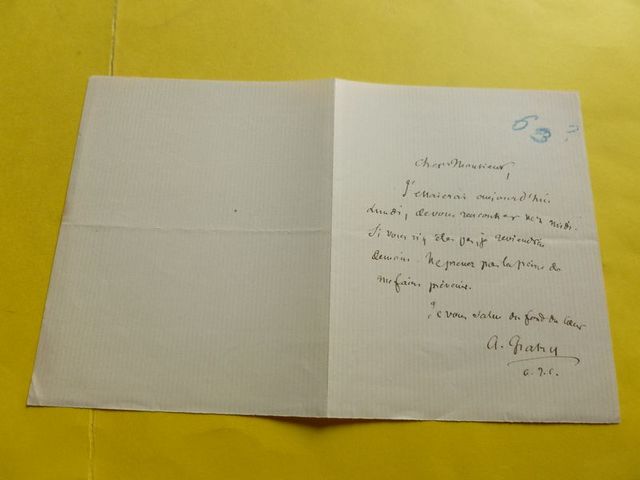 63 ?
cher Monsieur,
J'essaierai aujourd'hui
Lundi, de vous rencontrer vers midi.
Si vous n'y êtes pas, je reviendrai
demain. Ne prenez pas la peine de
me faire prévenir.
Je vous salue du fond du cœur
A. Gratry